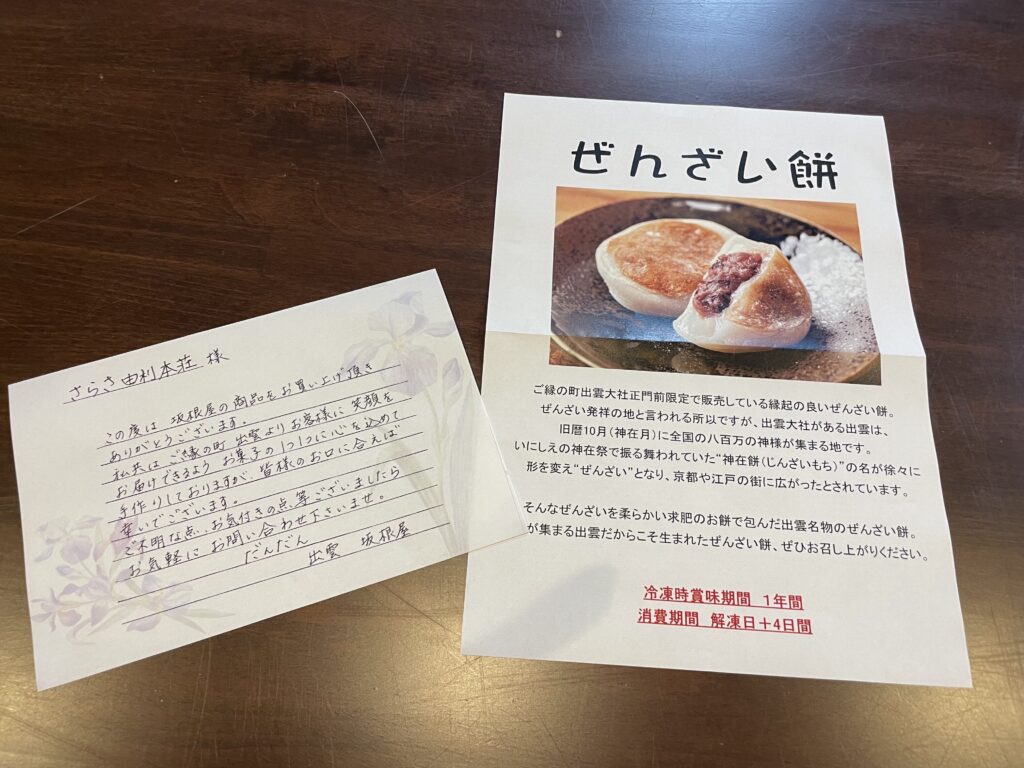 さらさ由利本荘 様
この度は 坂根屋の商品をお買い上げ頂き
ありがとうございます。
私共は ご縁の町 出雲よりお客様に 笑顔を
お届けできるよう お菓子の1つ1つに心を込めて
手作りしておりますが、皆様のお口に合えば
幸いでございます。
ご不明な点、お気付きの点 等ございましたら
お気軽に お問い合わせ下さいませ。
だんだん
出雲 坂根屋
ぜんざい餅
ご縁の町出雲大社正門前限定で販売している縁起の良いぜんざい餅。
ぜんざい発祥の地と言われる所以ですが、出雲大社がある出雲は、
旧暦10月（神在月）に全国の八百万の神様が集まる地です。
いにしえの神在祭で振る舞われていた“神在餅（じんざいもち）”の名が徐々に
形を変え“ぜんざい”となり、京都や江戸の街に広がったとされています。
そんなぜんざいを柔らかい求肥のお餅で包んだ出雲名物のぜんざい餅。
が集まる出雲だからこそ生まれたぜんざい餅、ぜひお召し上がりください。
冷凍時賞味期間 1年間
消費期間 解凍日＋4日間